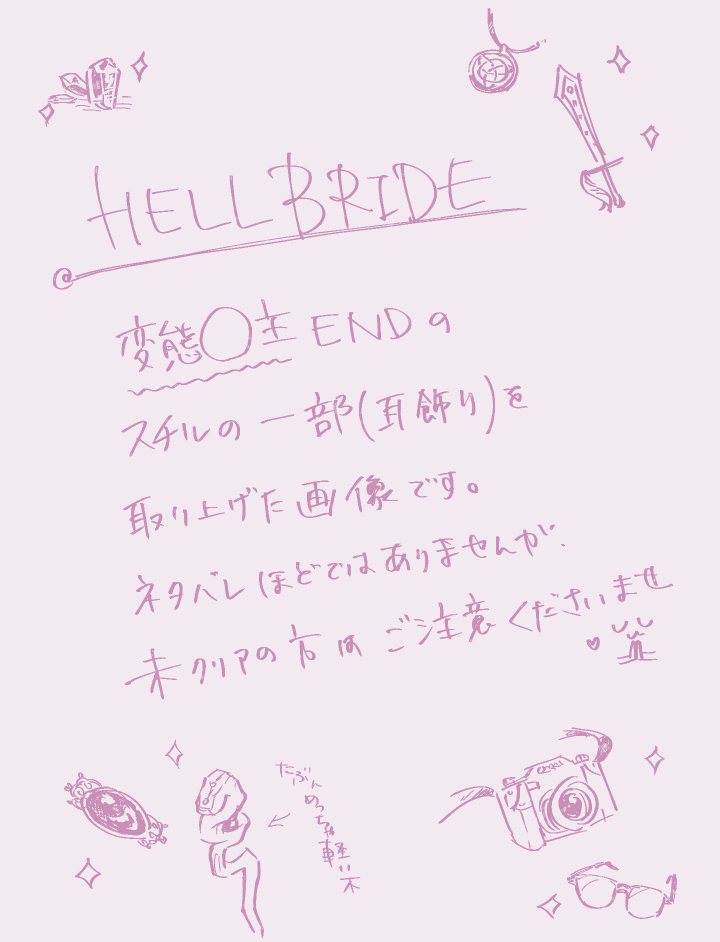 HELL BRIDE
変態○主ENDの
スチルの一部(耳飾り)を
取り上げた画像です。
ネタバレほどではありませんが、
未クリアの方はご注意くださいませ
たぶん
めっちゃ軽い木